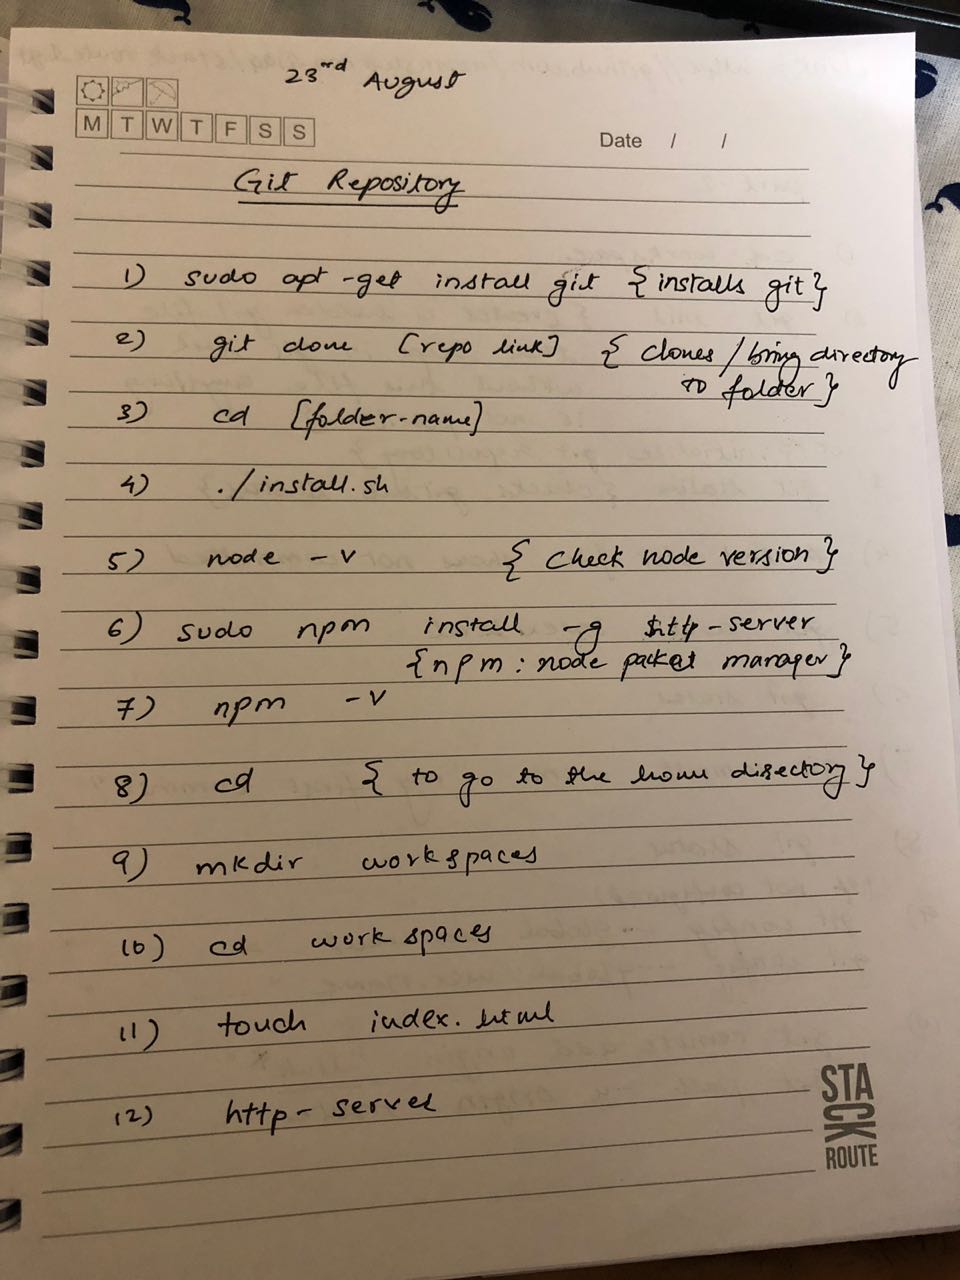 23rd August
M T W T F S S
Date / /
Git Repository
1) sudo apt-get install git {installs git}
2) git clone [repo link] { clones / bring directory
to folder}
3) cd [folder-name]
4) ./install.sh
5) node -v { check node version }
6) sudo npm install -g http-server
{npm: node packet manager}
7) npm -v
8) cd { to go to the home directory}
9) mkdir workspaces
10) cd workspaces
11) touch index.html
12) http-server
STA
CK
ROUTE